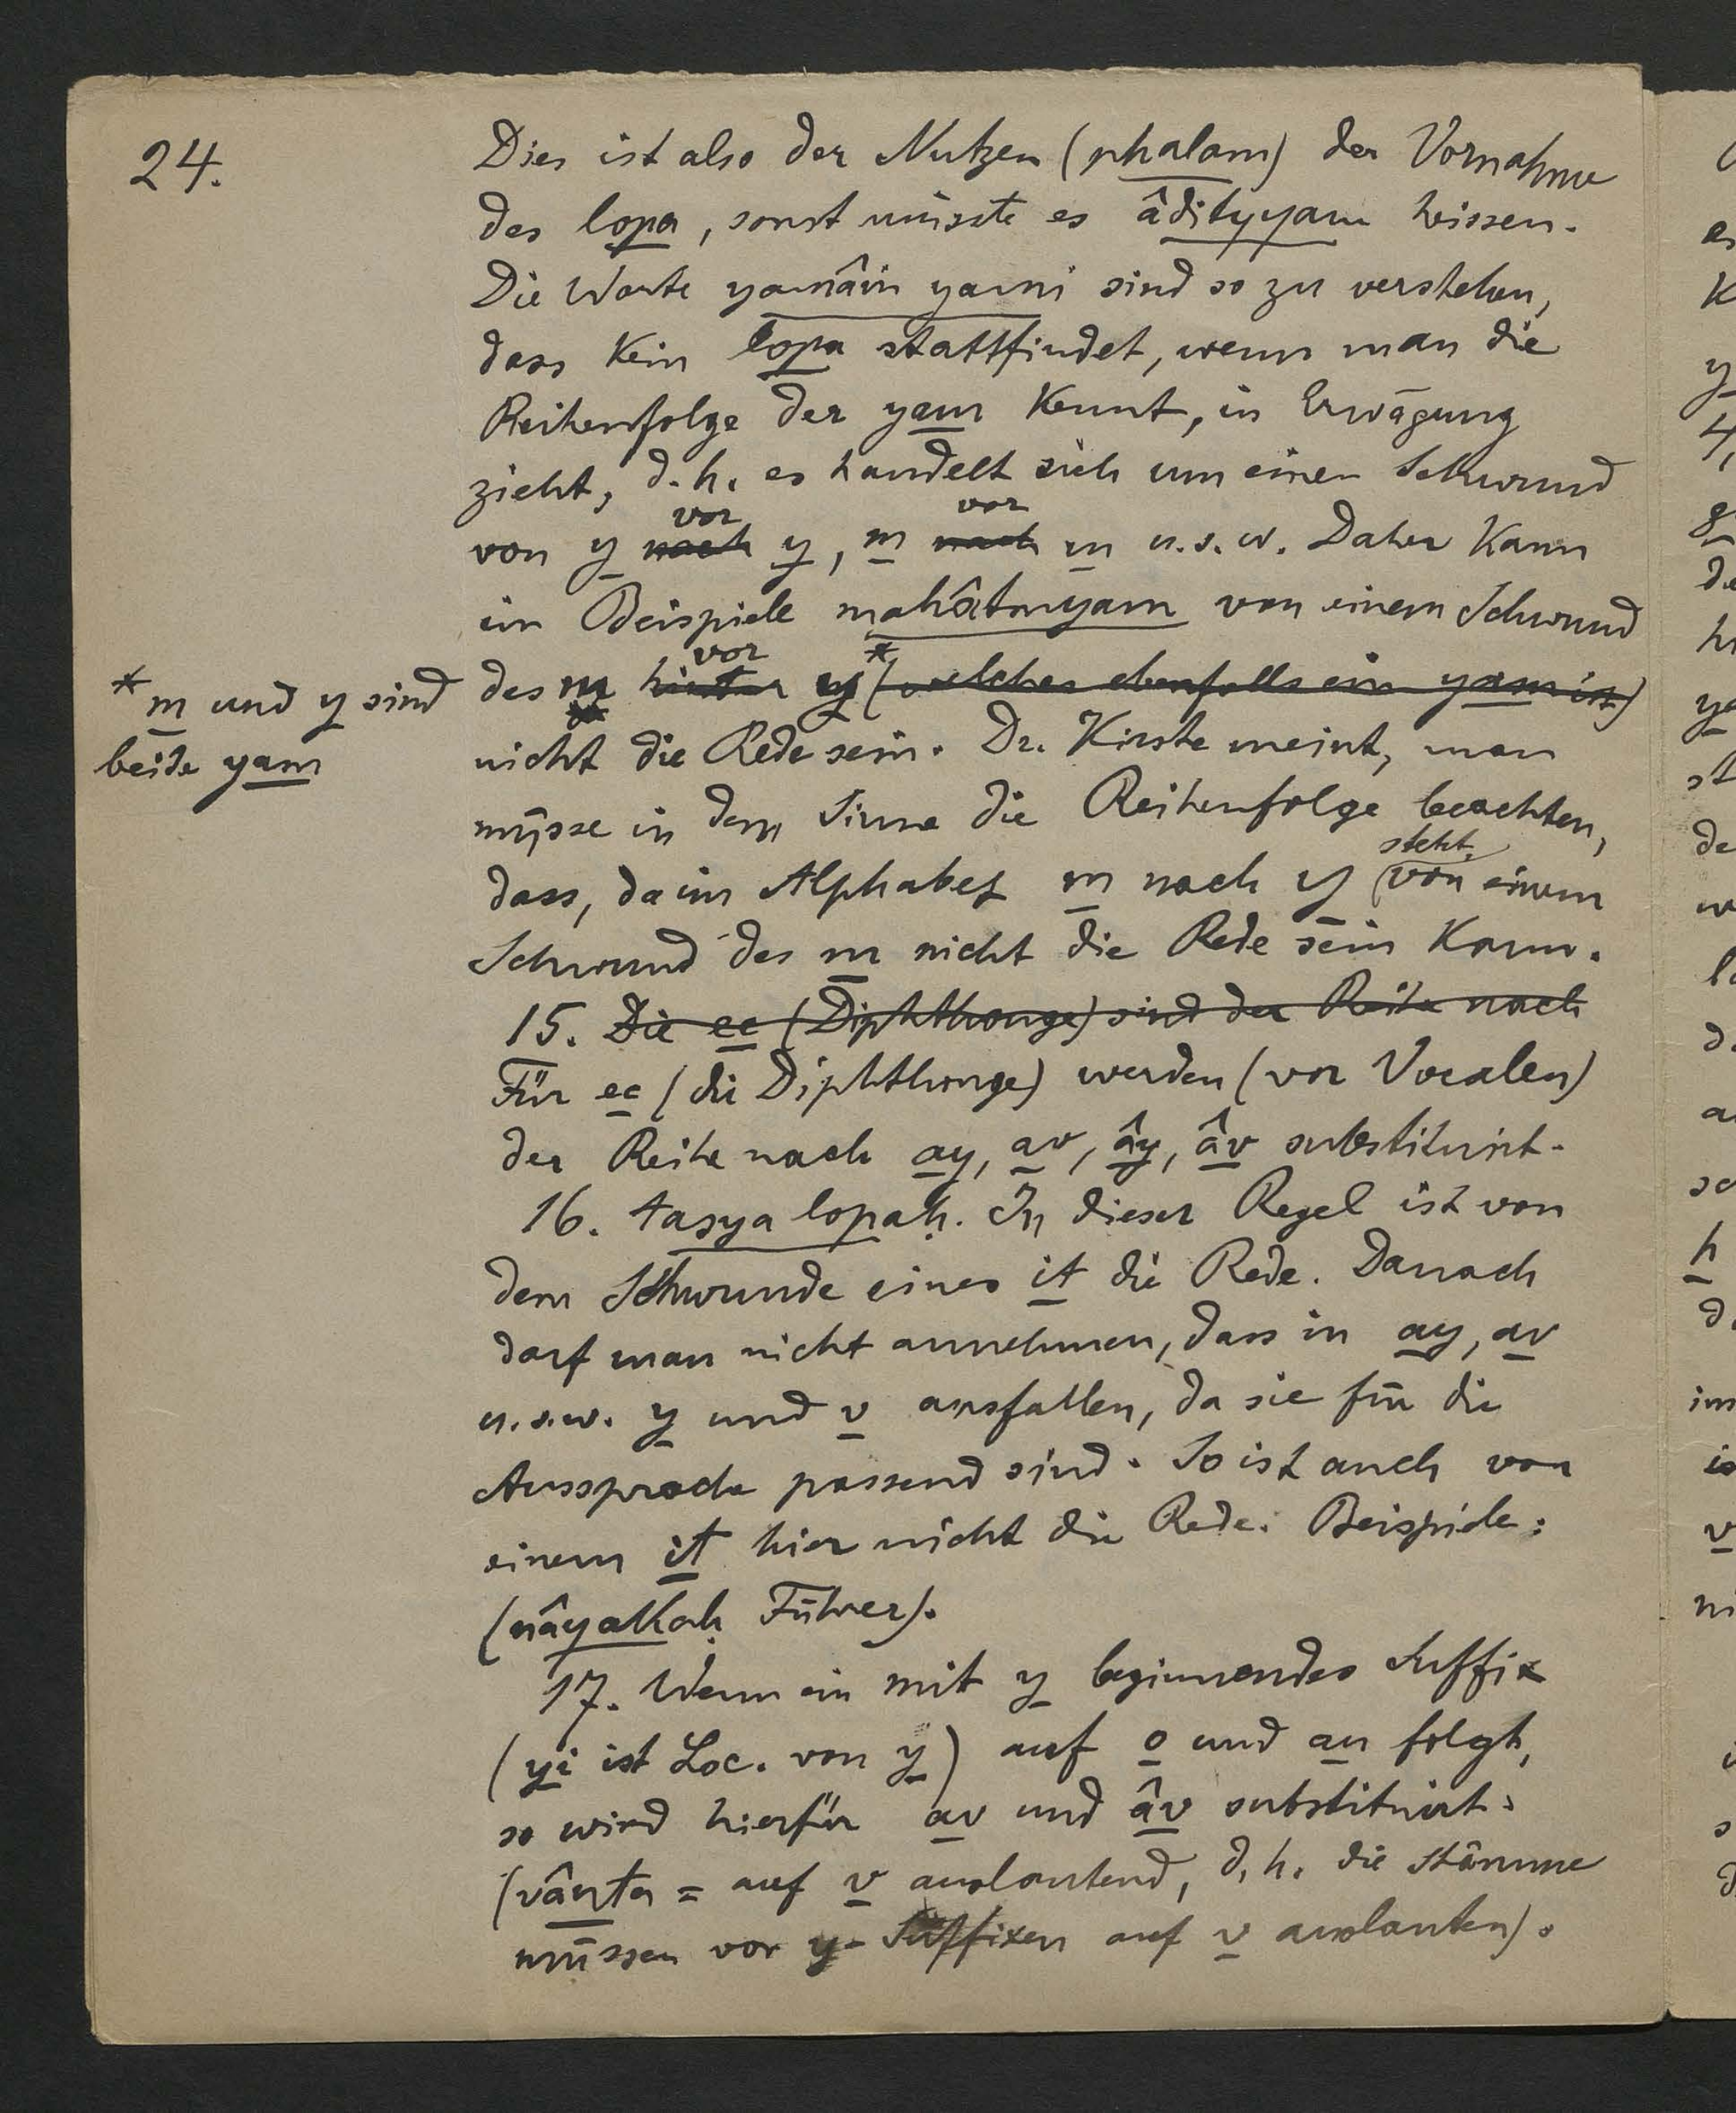 24.
Dies ist also der Nutzen (phalam) der Vornahme
des lopa, sonst müsste es âdityyam heissen.
Die Worte yamâm yami sind so zu verstehen,
dass kein lopa stattfindet, wenn man die
Reihenfolge der yam kennt, in Erwägung
zieht, d.h. es handelt sich um einen Schwund
vor vor
von y nach y, m nach m u.s.w. Daher kann
im Beispiele mahâtmyam von einem Schwund
vor *
des m hinter y (welches ebenfalls ein yam ist)
* m und y sind
beide yam
nicht die Rede sein. Dr. Kirste meint, man
müsse in dem Sinne die Reihenfolge beachten,
steht,
dass, da im Alphabet m nach y von einem
Schwund des m nicht die Rede sein kann.
15. Die ec (Diphthonge) sind der Reihe nach
Für ec (die Diphthonge) werden (vor Vocalen)
der Reihe nach ay, av, ây, âv substituirt.
16. tasya lopaḥ. In dieser Regel ist von
dem Schwunde eines it die Rede. Danach
darf man nicht annehmen, dass in ay, av
u.s.w. y und v ausfallen, da sie für die
Aussprache passend sind. So ist auch von
einem it hier nicht die Rede. Beispiele:
(nâyakaḥ Führer).
17. Wenn ein mit y beginnendes Suffix
(yi ist Loc. von y) auf o und au folgt,
so wird hierfür av und âv substituirt.
(vânta = auf v auslautend, d.h. die Stämme
müssen vor y-Suffixen auf v auslauten).